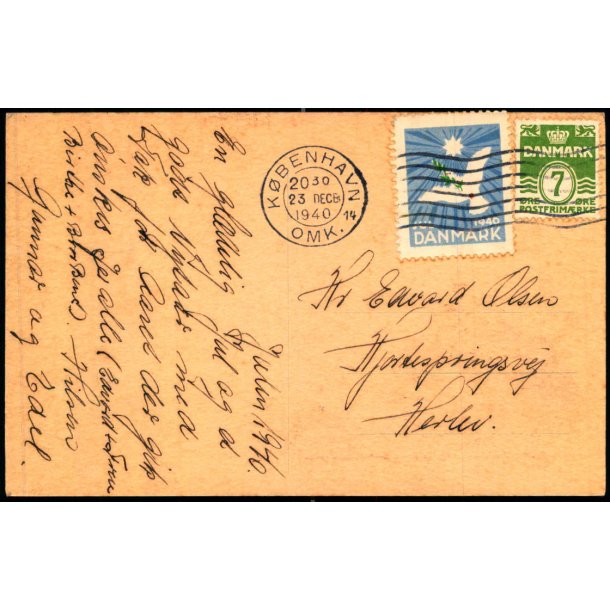 Julen 1940.
En glædelig Jul og et
godt Nytaar med
Tak for Aaret der gik
ønskes I alle (Edvard + Fru
Hilsen
Gunnar og Edel.
KØBENHAVN
20 30
23 DECB
1940
14
OMK.
JUL 1940
DANMARK
DANMARK
7
ØRE ØRE
POSTFRIMÆRKE
Hr Edvard Olsen
Hjortespringsvej
Herlev.